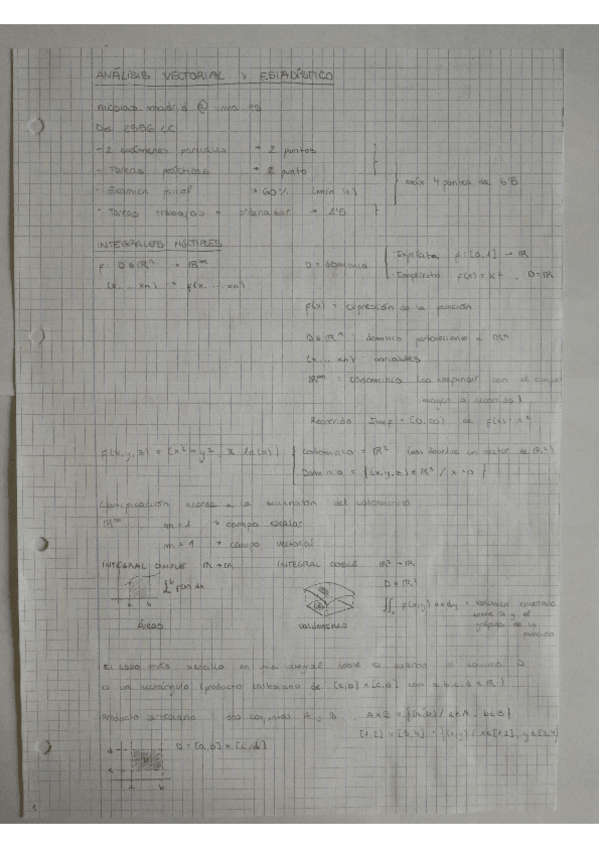 ANÁLISIS VECTORIAL Y ESTADÍSTICO
nicolas.madrid @ uma.es
Des 2556 LC
- 2 exámenes parciales → 2 puntos
- Tareas prácticas → 2 punto
- Examen final → 60% (mín 4) máx 4 puntos de 6'5
- Tareas trabajos + ordenador → 2'5
INTEGRALES MÚLTIPLES
f: D ⊆ ℝⁿ → ℝᵐ D = dominio
Explícita f: [0,1] → ℝ
(x, ... xn) → f(x, ... xn)
Implícito f(x) = x² D = ℝ
f(x) = expresión de la función
D ⊆ ℝⁿ : dominio perteneciente a ℝⁿ
(x, ... xn) : variables
ℝᵐ : codominio (no confundir con el
imagen o recorrido)
Recorrido Im f = [0,∞) de f(x) = x²
f(x,y,z) = (x² - y², z ln(x))
Codominio = ℝ² (nos devuelve un vector de ℝ²)
Dominio = {(x,y,z) ∈ ℝ³ / x > 0}
Clasificación acorde a la dimensión del codominio
ℝᵐ m = 1 → campo escalar
m ≠ 1 → campo vectorial
INTEGRAL SIMPLE ℝ → ℝ INTEGRAL DOBLE ℝ² → ℝ
D ⊆ ℝ²
∫ₐᵇ f(x) dx
∬ f(x,y) dx dy = volumen encerrado
entre D y el
gráfico de la
función
a b
Áreas volúmenes
El caso más sencillo en una integral doble es cuando el dominio D
es un rectángulo (producto cartesiano de [a,b] × [c,d] con a,b,c,d ∈ ℝ)
Producto cartesiano: dos conjuntos A y B A×B = {(a,b) / a ∈ A, b ∈ B}
[1,2] × [3,4] = {(x,y) / x ∈ [1,2], y ∈ [3,4]
d D = [a,b] × [c,d]
c
a b
1